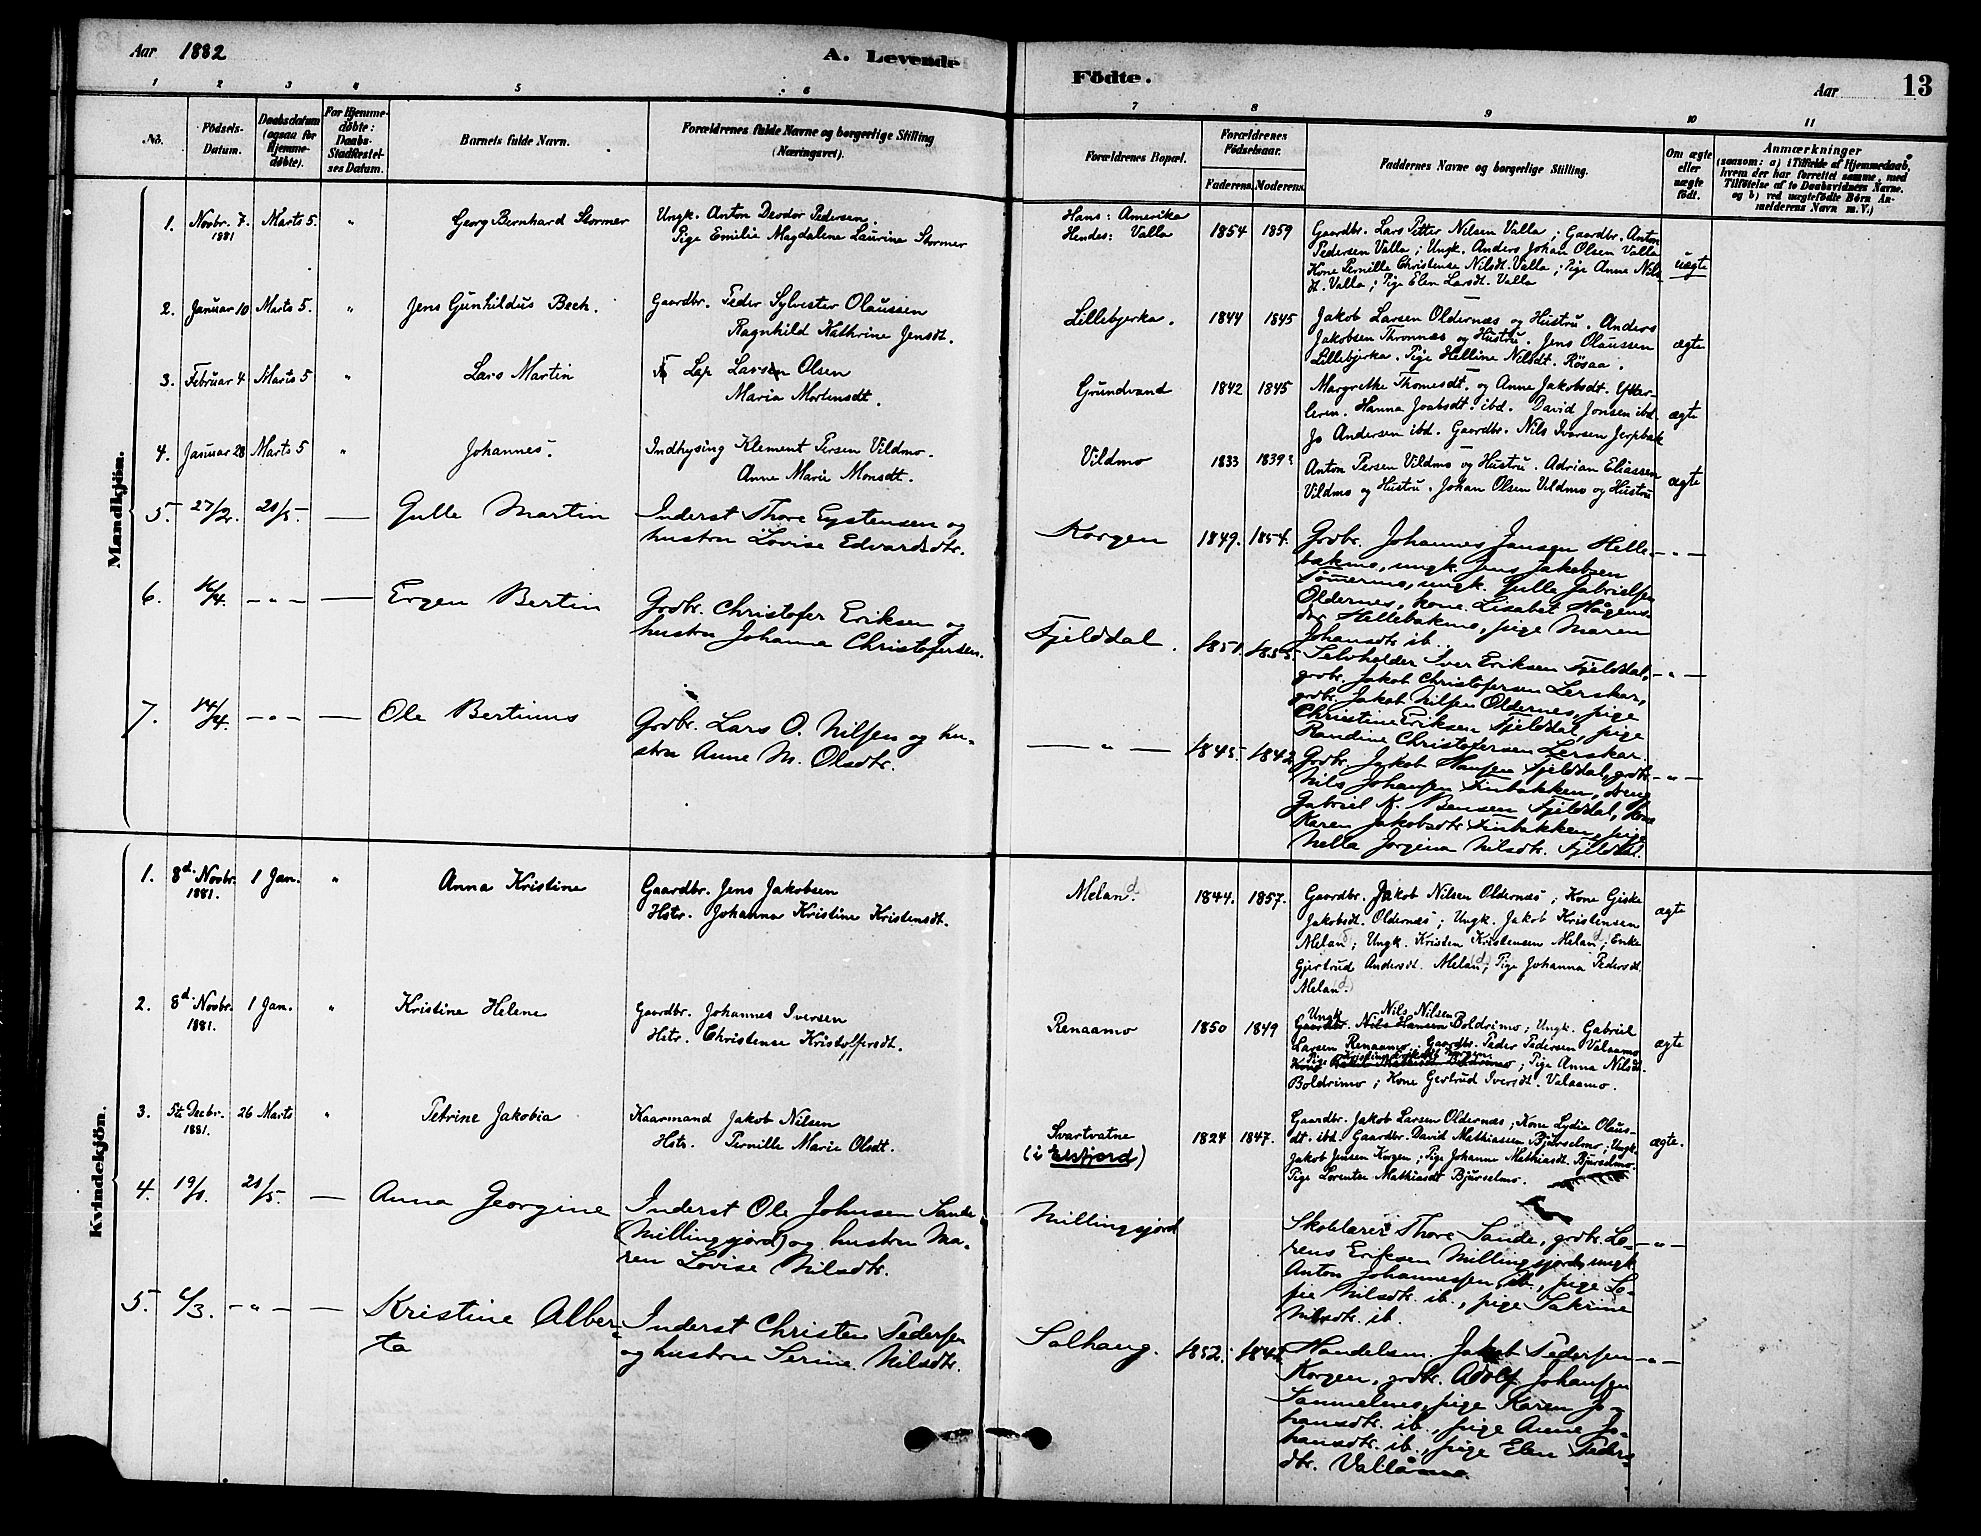 Aar 1882
A. Levende Födte.
Aar
13
1 2 3 4 5 6 7 8 9 10 11
No.
Födsels-Datum.
Daabsdatum (ogsaa for Hjemme-døbte).
For Hjemme-døbte: Daabs-Stadfæstel-ses Datum.
Barnets fulde Navn.
Forældrenes fulde Navne og borgerlige Stilling (Næringsvei).
Forældrenes Bopæl.
Forældrenes Födselsaar.
Faderens. Moderens.
Faddernes Navne og borgerlige Stilling.
Om ægte eller uægte født.
Anmærkninger
(saasom: a) i Tilfælde af Hjemmedaab,
hvem der har forrettet samme, med
Tilføielse af to Daabsvidners Navne.
og b) ved uægtefödte Børn An-
melderens Navn m. V.)
Mandkjön.
1. Novbr. 7. 1881 Marts 5. " Georg Bernhard Stormer
Ungk. Anton Deodor Pedersen.
Pige Emilie Magdalena Laurine Stormer
Hans: Amerika
Hendes: Valla
1854 1859
Gaardbr. Lars Petter Nilsen Valla; Gaardbr. Anton
Pedersen Valla; Ungk. Anders Johan Olsen Valla
Kone Pernilla Christense Nilsdt. Valla; Pige Anne Nils
dt. Valla; Pige Elen Larsdt. Valla
uægte
2. Januar 10 Marts 5. " Jens Gunhildus Bech.
Gaardbr. Peder Sylvester Olaussen
Ragnhild Kathrine Jensdt.
Lillebjerka.
1844 1845
Jakob Larsen Oldernæs og Hustru. Anders
Jakobsen Thronnæs og Hustru. Jens Olaussen
Lillebjerka. Pige Helline Nelsdt. Rösaa.
ægte
3. Februar 4 Marts 5 " Lars Martin
Lap Larsen Olsen
Maria Mortensdt.
Grundvand
1842 1845
Margrethe Thomesdt. og Anne Jakobsdt. Ytter-
leren. Hanna Joabsdt. ibd. David Jonsen ibd.
Jo Andersen ibd. Gaardbr. Nils Iversen Jerpbak
ægte
4. Januar 28 Marts 5 " Johannes.
Indhysing Klement Persen Vildmo.
Anne Marie Monsdt.
Vildmo
1833 1839?
Anton Persen Vildmo og Hustru. Adrian Eliassen
Vildmo og Hustru. Johan Olsen Vildmo og Hustru
ægte
5. 27/2. 21/5. — Gulle Martin
Inderst Thore Eystensen og
hustru Lovise Edvardsdtr.
Korgen
1849. 1854.
Grdbr. Johannes Jansen Helle-
bakmo, ungk. Jens Jakobsen
Tömmermo, ungk. Gulle Gabrielsen
Oldernes, kone Lisabet Hågens-
dtr Hellebakmo, pige Maren
Johansdtr. ib.
— " —
6. 16/4. — " — — Ergen Bertin
Grdbr. Christofer Eriksen og
hustru Johanna Christofersen.
Fjelddal.
1851. 1855.
Selvholder Iver Eriksen Fjelddal,
grdbr. Jakob Christofersen Lerskar,
grdbr. Jakob Nilsen Oldernes, pige
Christine Eriksen Fjelddal, pige
Randine Christofersen Lerskar.
— " —
7. 14/4. — " — — Ole Bertinus
Grdbr. Lars O. Nilsen og hu-
stru Anne M. Olsdtr.
— " —
1845. 1842
Grdbr. Jakob Hansen Fjelddal, grdbr.
Nils Johansen Finbakken, dreng
Gabriel K. Bensen Fjelddal, kone
Karen Jakobsdtr Finbakken, pige
Nella Jorgina Nilsdtr. Fjelddal.
— " —
Kvindekjön.
1. 8d. Novbr. 1881. 1 Jan. " Anna Kristine
Gaardbr. Jens Jakobsen
Hstr. Johanna Kristine Kristensdt.
Meland.
1844. 1857.
Gaardbr. Jakob Nilsen Oldernæs; Kone Giske
Jakobsdt. Oldernæs; Ungk. Jakob Kristensen
Meland; Ungk. Kristen Kristensen Meland; Enke
Gjertrud Andersdt. Melan(d); Pige Johanna Pedersdt.
Melan(d).
ægte
2. 8d. Novbr. 1881. 1 Jan. " Kristine Helene
Gaardbr. Johannes Iversen
Hstr. Christense Kristoffersdt.
Renaamo
1850 1849
Ungk. Nils Nilsen
Gaardbr. Nils Hansen Boldrimo; Ungk. Gabriel
Larsen Renaamo; Gaardbr. Peder Pedersen Valaamo
Boldrimo; Pige Anna Nilsdt.
Boldrimo; Kone Gertrud Iversdt. Valaamo.
ægte
3. 5te Decbr. 1881. 26 Marts " Petrine Jakobia
Kaarmand Jakob Nilsen
Hstr. Pernille Marie Olsdt.
Svartvatne
(i Elsfjord)
1824 1847.
Gaardbr. Jakob Larsen Oldernæs; Kone Lydia Olaus-
dt. ibd. Gaardbr. David Mathiassen Bjurselmo; Ungk.
Jakob Jensen Korgen; Pige Johanne Mathiasdt. Bjurselmo.
Pige Lorentse Mathiasdt Bjurselmo.
ægte.
4. 19/1. 21/5. — Anna Georgine
Inderst Ole Johnsen Sande
(Millingsjord) og hustru Ma-
ren Lovise Nilsdtr.
Millingsjord
Skolelærer Thore Sande, grdbr. Lo-
rens Eriksen Millingsjord, ungk.
Anton Johannessen ib., pige So-
fie Nilsdtr. ib., pige Sakrine
Nilsdtr. ib.
— " —
5. 6/3. — " — — Kristine Alber-
ta
Inderst Christen Pedersen
og hustru Serine Nilsdtr.
Solhaug.
1852.
Handelsm. Jakob Pedersen
Korgen, grdbr. Adolf Johansen
Sammelnes, pige Karen Jo-
hansdtr. ib., pige Anne Jo-
hansdtr. ib., pige Elen Peders-
dtr. Vallåmo.
— " —